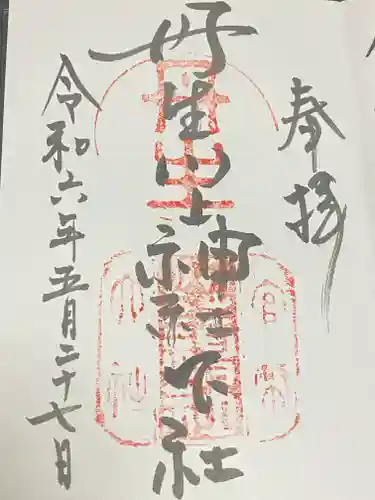 奉拝
丹生川上神社下社
令和六年五月二十七日